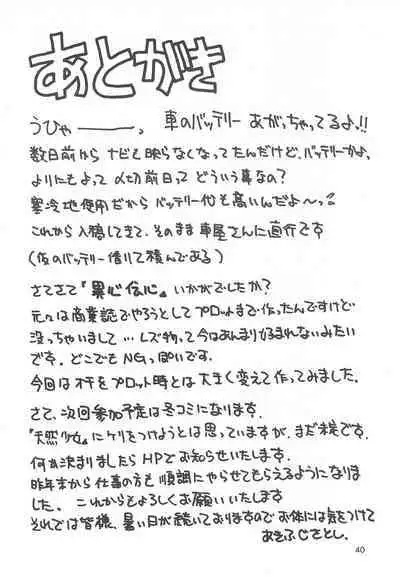 あとがき
うひゃーーー。 車のバッテリー あがっちゃってるよ!!
数日前から ナビも映らなくなってたんだけど、バッテリーかよ、
よりにもよって 〆切前日って どういう事なの?
寒冷地使用だから バッテリー代も高いんだよ〜っ
これから入稿してきて、そのまま 車屋さんに直行です
(仮のバッテリー借りて積んである)
さてさて『異心伝心』いかがでしたか?
元々は商業誌でやろうとしてプロットまで作ったんですけど
没っちゃいまして…レズ物って今はあんまり好まれないみたい
です。どこでもNGっぽいです。
今回はオチをプロット時とは大きく変えて作ってみました。
さて、次回参加予定は冬コミになります。
『天然少女』にケリをつけようとは思っていますが、まだ未定です。
何か決まりましたらHPでお知らせいたします。
昨年末から仕事の方も順調にやらせてもらえるようになりま
した。これからもよろしくお願いいたします
それでは皆様、暑い日が続いておりますのでお体には気をつけて
あきふじさとし。
40